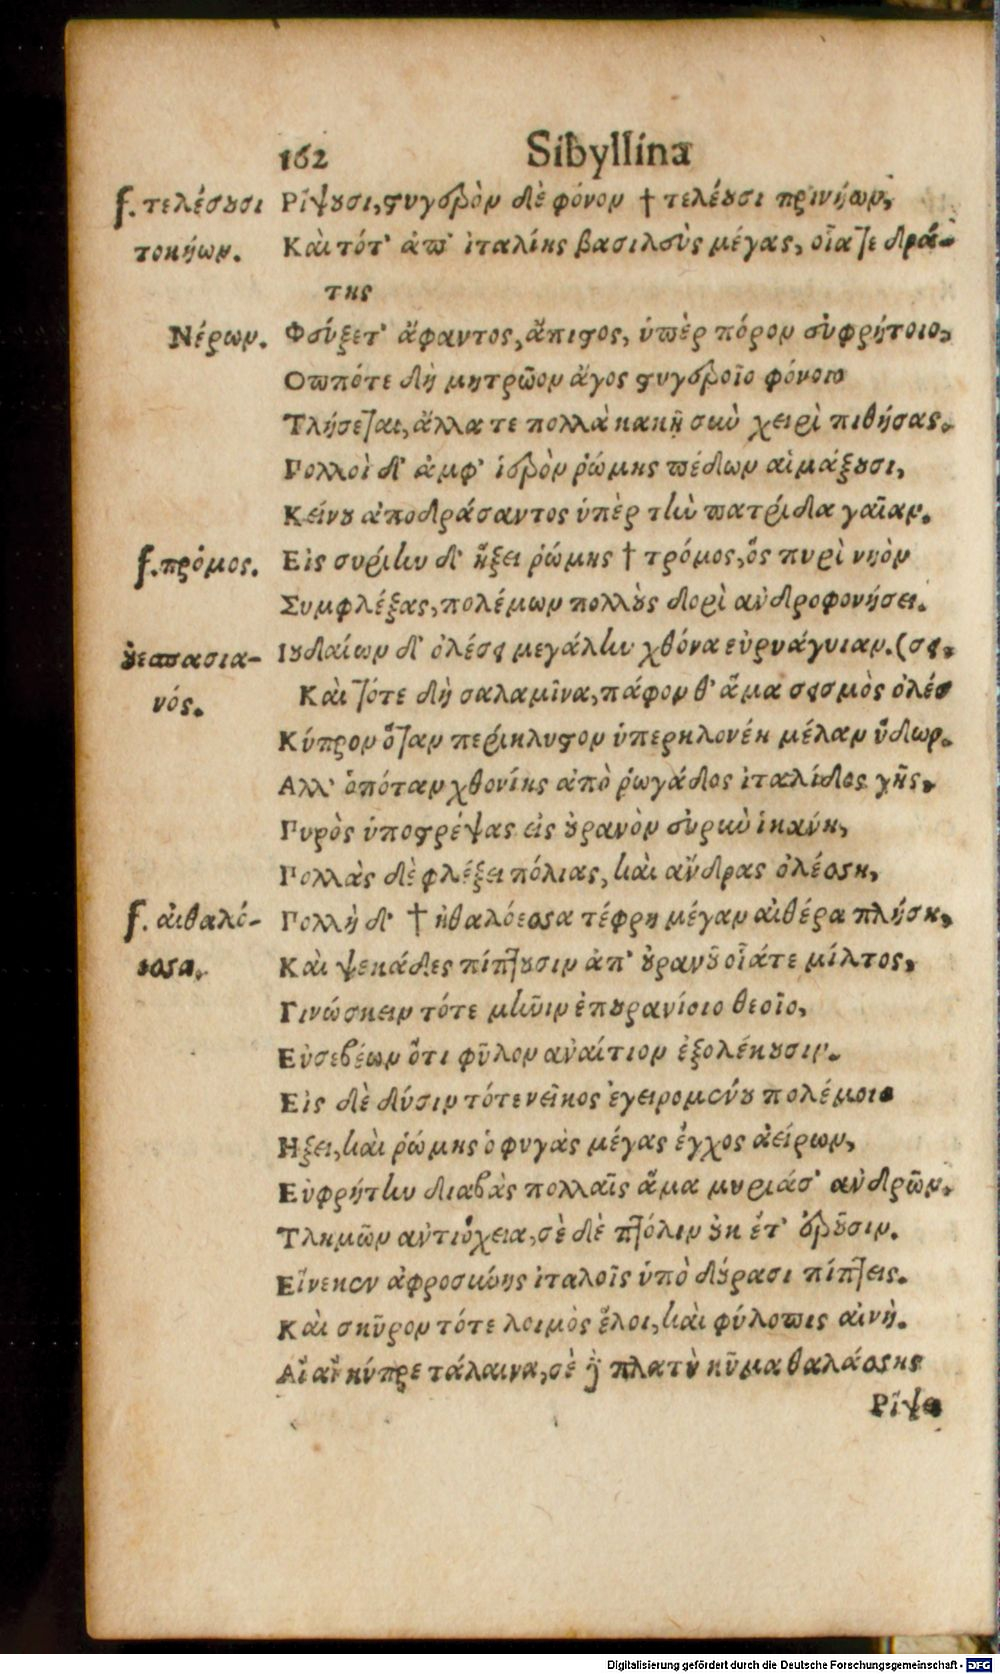 162 Sibyllina
f. τελέσουσι
τοκήων.
Ρίψουσι, στυγερὸν δὲ φόνον † τελέουσι πρινήων,
Καὶ τότ' ἀπ' ἰταλίης βασιλεὺς μέγας, οἷά τε δρά-
της
Νέρων.
Φεύξετ' ἄφαντος, ἄπιστος, ὑπὲρ πόρον εὐφρήτοιο,
Οππότε δὴ μητρῶον ἄγος στυγεροῖο φόνοιο
Τλήσεται, ἄλλα τε πολλὰ κακῇ σὺν χειρὶ πιθήσας.
Πολλοὶ δ' ἀμφ' ἱερὸν ῥώμης πέδων αἱμάξουσι,
Κείνου ἀποδράσαντος ὑπὲρ τὴν πατρίδα γαῖαν.
f. πρόμος.
Εἰς συρίην δ' ἥξει ῥώμης † τρόμος, ὅς πυρὶ νηὸν
Συμφλέξας, πολέμων πολλοὺς δορὶ ἀνδροφονήσει.
οὐεσπασια-
νός.
Ιουδαίων δ' ὀλέσει μεγάλην χθόνα εὐρυάγυιαν. (σει,
Καὶ τότε δὴ σαλαμῖνα, πάφον θ' ἅμα σεισμὸς ὀλέ
Κύπρον ὅταν περίκλυστον ὑπερκλονέη μέλαν ὕδωρ.
Αλλ' ὁπόταν χθονίης ἀπὸ ῥωγάδος ἰταλίδος γῆς,
Πυρὸς ὑποστρέψας εἰς οὐρανὸν εὐρὺν ἱκάνη,
Πολλὰς δὲ φλέξει πόλιας, καὶ ἄνδρας ὀλέσση,
f. αἰθαλό-
εσσα.
Πολλὴ δ' † ἠθαλόεσσα τέφρη μέγαν αἰθέρα πλήση,
Καὶ ψεκάδες πίπτουσιν ἀπ' οὐρανοῦ οἷάτε μίλτος,
Γινώσκειν τότε μῆνιν ἐπουρανίοιο θεοῖο,
Εὐσεβέων ὅτι φῦλον ἀναίτιον ἐξολέκουσιν.
Εἰς δὲ δύσιν τότε νεῖκος ἐγειρομένου πολέμοιο
Ηξει, καὶ ῥώμης ὁ φυγὰς μέγας ἔγχος ἀείρων,
Εὐφρήτην διαβὰς πολλαῖς ἅμα μυριάσ' ἀνδρῶν.
Τλημῶν ἀντιόχεια, σὲ δὲ πτόλιν οὐκ ἔτ' ἐροῦσιν.
Εἵνεκεν ἀφροσύνης ἰταλοῖς ὑπὸ δύρασι πίπτεις.
Καὶ σκῦρον τότε λοιμὸς ἕλοι, καὶ φύλοπις αἰνὴ.
Αἲ αἲ κύπρε τάλαινα, σὲ δὲ πλατὺ κῦμα θαλάσσης
Ρίψε
Digitalisierung gefördert durch die Deutsche Forschungsgemeinschaft - DFG